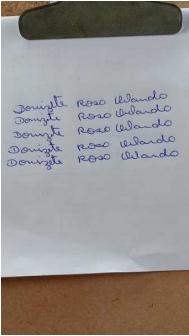 Donizete Roso Urlando
Donizete Roso Urlando
Donizete Roso Urlando
Donizete Roso Urlando
Donizete Roso Urlando